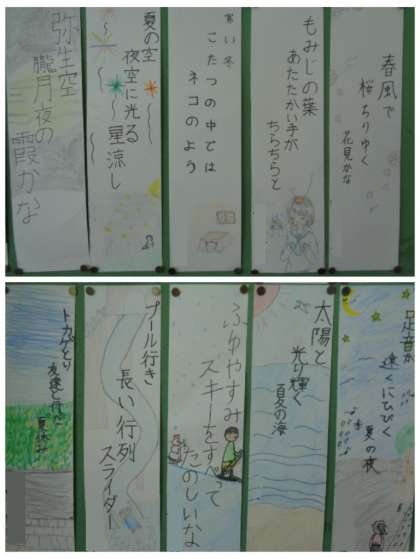 春風で
桜ちりゆく
花見かな
もみじの葉
あたたかい手が
ちらちらと
寒い冬
こたつの中では
ネコのよう
夏の空
夜空に光る
星涼し
弥生空
朧月夜の
霞かな
足音が
遠くにひびく
夏の夜
太陽と
光り輝く
夏の海
ふゆやすみ
スキーをすべって
たのしいな
プール行き
長い行列
スライダー
トカゲとり
友達と
夏休み